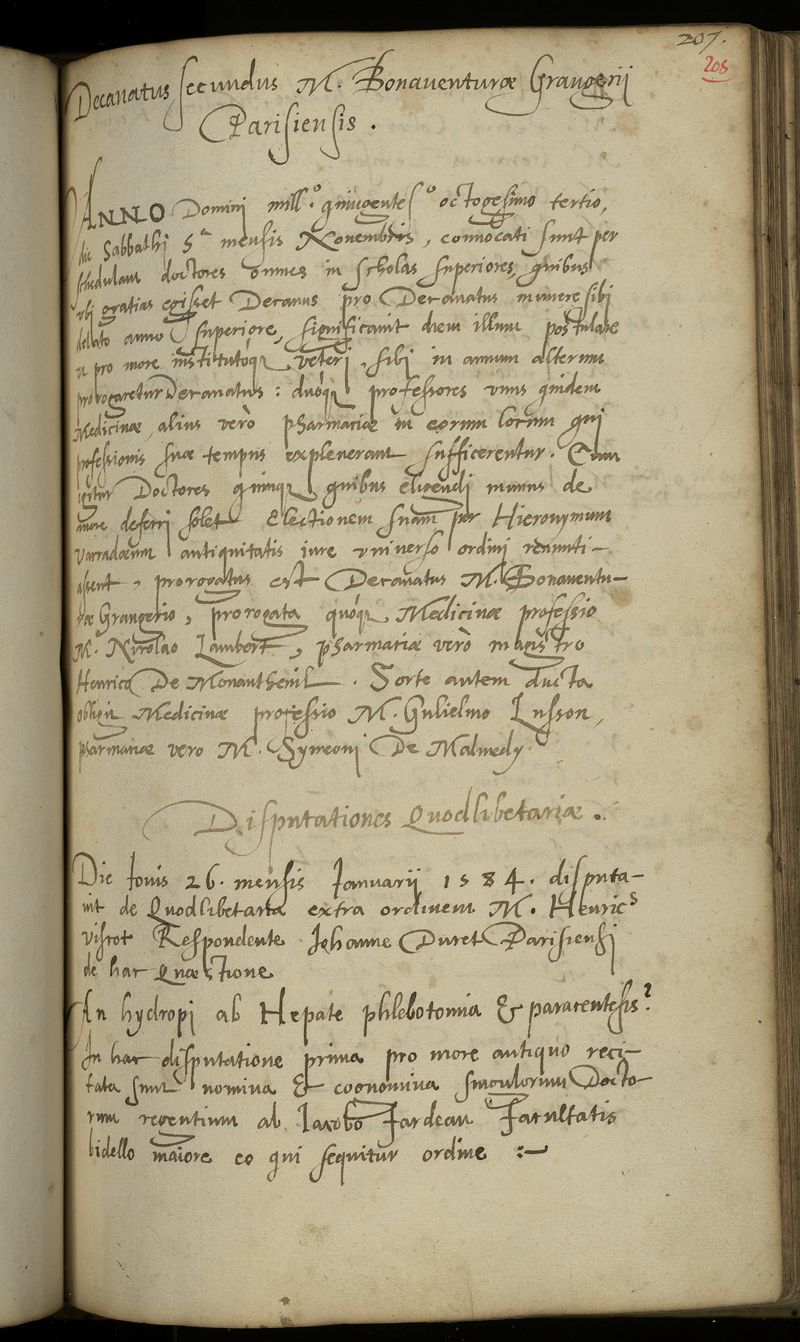 207.
208
Decanatus secundus M. Bonaventuræ Grangerij
Parisiensis .
ANNO Domini mill.º quingentesº octogesimo tertio,
die Sabbathi 5ª mensis Novembris, convocati sunt per
schedulam doctores omnes in scholas superiores, quibus
ubi gratias egisset Decanus pro Decanatus munere sibi
delato anno superiore, significavit diem illum postulare
ut pro more institutóq; veteri, sibi in annum alterum
prorogaretur Decanatus : duóq; professores unus quidem
Medicinæ, alius verò pharmaciæ in eorum locum qui
professionis suæ tempus expleverant sufficerentur. Cum
igitur Doctores quinq; quibus eligendi munus de
more deferri solet Electionem suam per Hieronymum
Varradæum antiquitatis iure universo ordini renunti-
assent, prorogatus est Decanatus M. Bonaventu-
ræ Grangerio, prorogata quóq; Medicinæ professio
M.º Nicolao Lambert, pharmaciæ verò magistro
Henrico De Monantheuil . Sorte autem ducta
obtigit Medicinæ professio M. Gulielmo Lusson,
pharmaciæ vero M. Symeoni De Malmedy
Disputationes Quodlibetariæ .
Die Iovis 26. mensis Ianuarij 1584. disputa-
vit de Quodlibetaria extra ordinem M. Henricˢ
Respondente Johanne Duret Parisiensi
de hac Quæstione
An hydropi ab Hepate phlebotomia & paracentesis?
In hac disputatione prima pro more antiquo reci-
tata sunt nomina & cognomina singulorum Docto-
rum regentium ab Iacobo Jardeau Facultatis
bidello maiore eo qui sequitur ordine :~